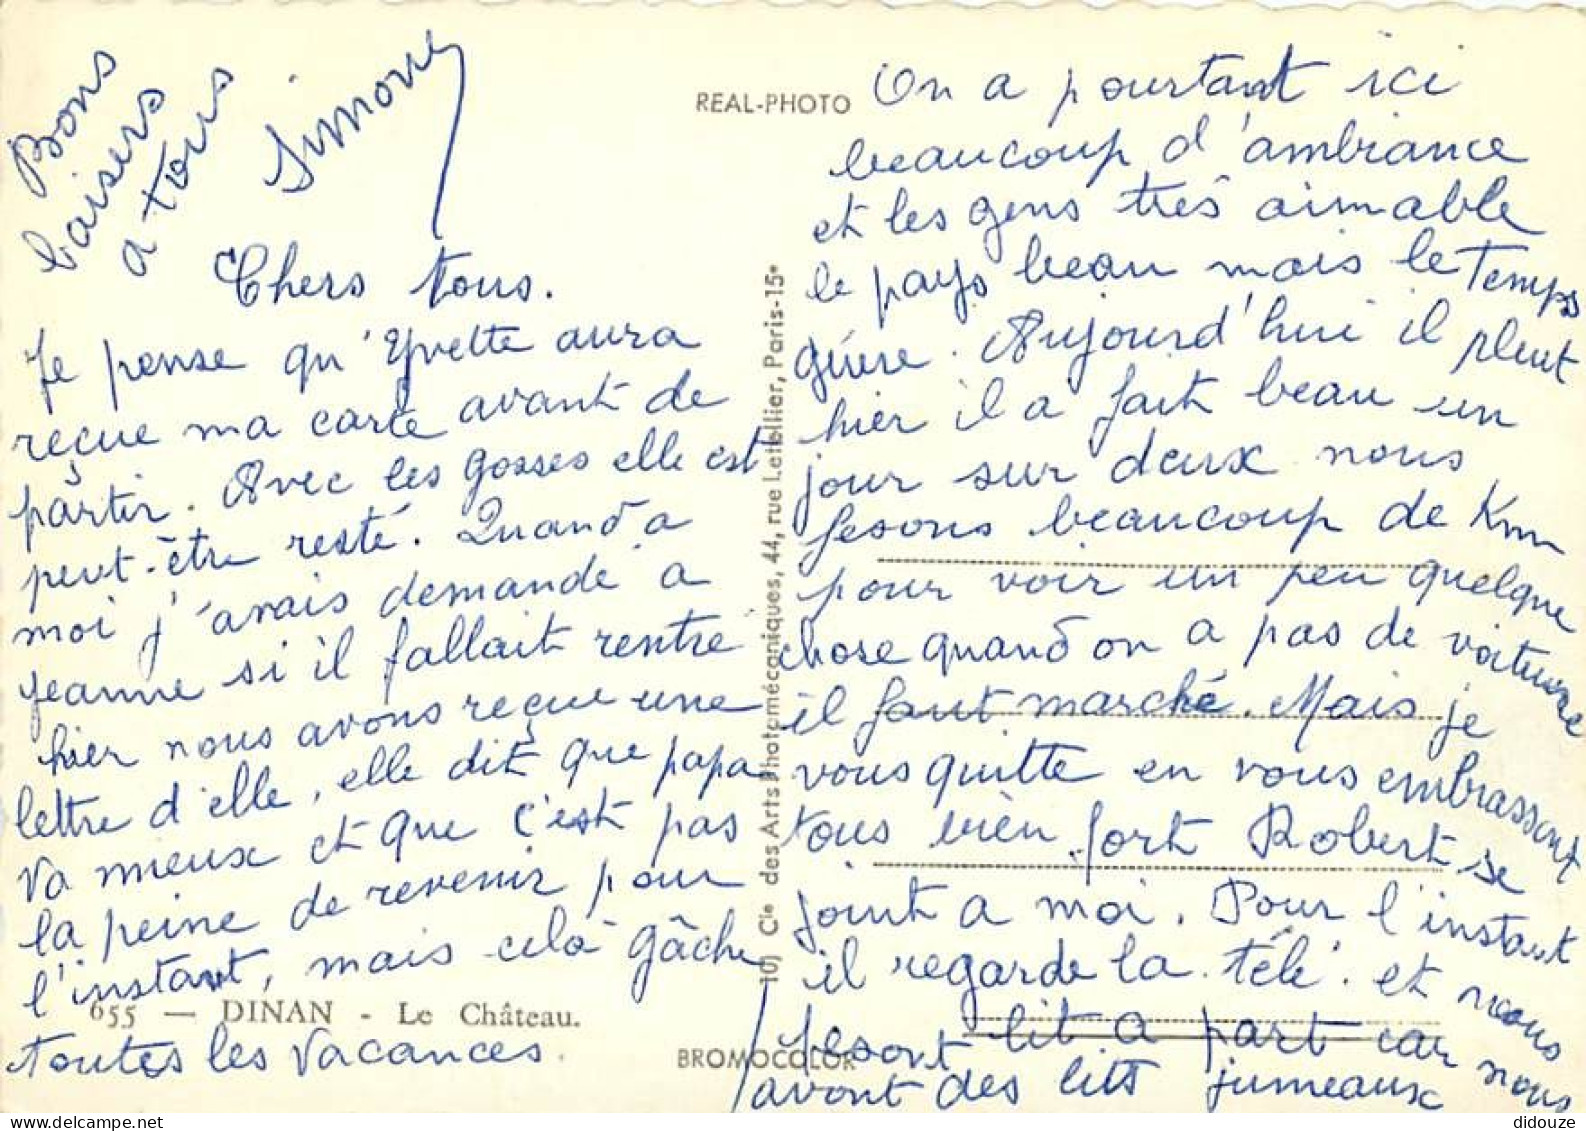 Bons
baisers
a tous
Simone
Chers tous.
Je pense qu'Yvette aura
reçue ma carte avant de
partir. Avec les gosses elle est
peut-être resté. Quand a
moi j'avais demandé a
Jeanne si il fallait rentre
hier nous avons reçue une
lettre d'elle, elle dit que papa
va mieux et que c'est pas
la peine de revenir pour
l'instant, mais celà gâche
toutes les vacances.
655 — DINAN - Le Château.
REAL-PHOTO
BROMOCOLOR
Cie des Arts Photomécaniques, 44, rue Letellier, Paris-15e
On a pourtant ici
beaucoup d'ambiance
et les gens très aimable
le pays beau mais le temps
guère. Aujourd'hui il pleut
hier il a fait beau un
jour sur deux nous
fesons beaucoup de Km
pour voir un peu quelque
chose quand on a pas de voiture
il faut marché. Mais je
vous quitte en vous embrassant
tous bien fort Robert se
joint a moi. Pour l'instant
il regarde la télé. et nous
fesont lit a part car nous
avont des lits jumeaux
didouze